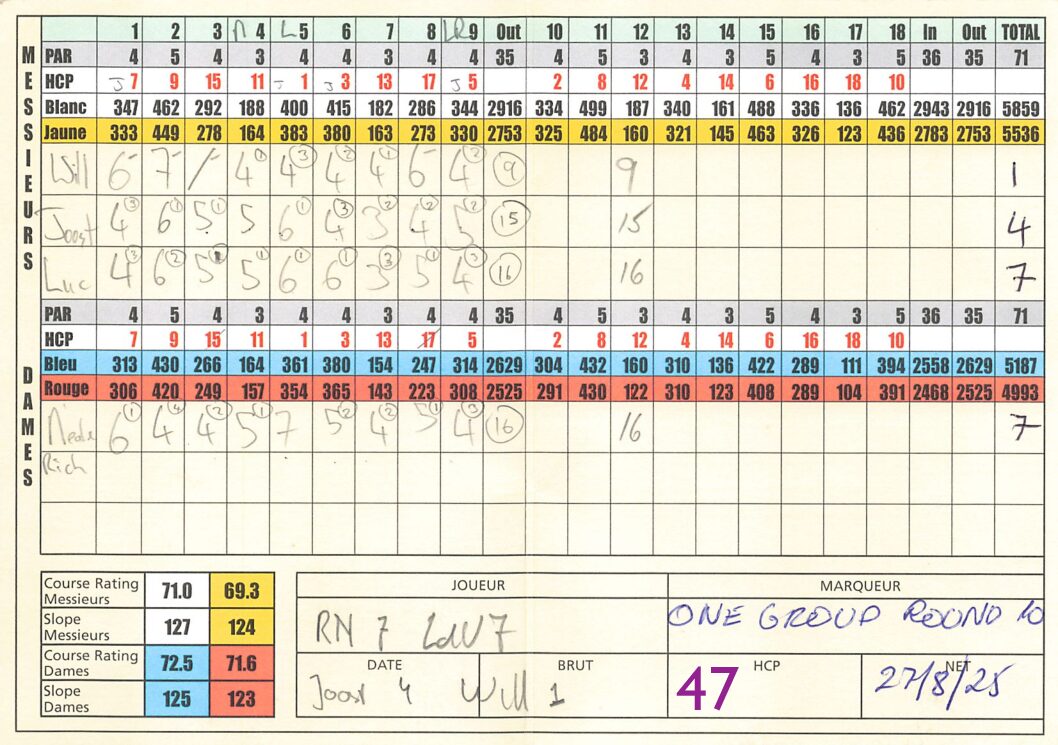 1 2 3 4 L 5 6 7 8 LR 9 Out 10 11 12 13 14 15 16 17 18 In Out TOTAL
MESSIEURS
PAR 4 5 4 3 4 4 3 4 4 35 4 5 3 4 3 5 4 3 5 36 35 71
HCP J 7 9 15 11 J 1 J 3 13 17 J 5 2 8 12 4 14 6 16 18 10
Blanc 347 462 292 188 400 415 182 286 344 2916 334 499 187 340 161 488 336 136 462 2943 2916 5859
Jaune 333 449 278 164 383 380 163 273 330 2753 325 484 160 321 145 463 326 123 436 2783 2753 5536
Will 6- 7- / 4 1 4 3 4 2 4 1 6- 4 2 9 9 1
Joost 4 3 6 1 5 1 5 6 1 4 3 3 2 4 2 5 2 15 15 4
Luc 4 3 6 2 5 5 1 6 1 6 1 3 3 5 1 4 3 16 16 7
DAMES
PAR 4 5 4 3 4 4 3 4 4 35 4 5 3 4 3 5 4 3 5 36 35 71
HCP 7 9 15 11 1 3 13 17 5 2 8 12 4 14 6 16 18 10
Bleu 313 430 266 164 361 380 154 247 314 2629 304 432 160 310 136 422 289 111 394 2558 2629 5187
Rouge 306 420 249 157 354 365 143 223 308 2525 291 430 122 310 123 408 289 104 391 2468 2525 4993
6 1 4 4 4 2 5 1 7 5 2 4 2 5 1 4 3 16 16 7
Rich
Course Rating Messieurs 71.0 69.3
Slope Messieurs 127 124
Course Rating Dames 72.5 71.6
Slope Dames 125 123
JOUEUR MARQUEUR
RN 7 LdV 7 ONE GROUP ROUND 10
DATE BRUT HCP NET
Joost 4 Will 1 47 27/8/25